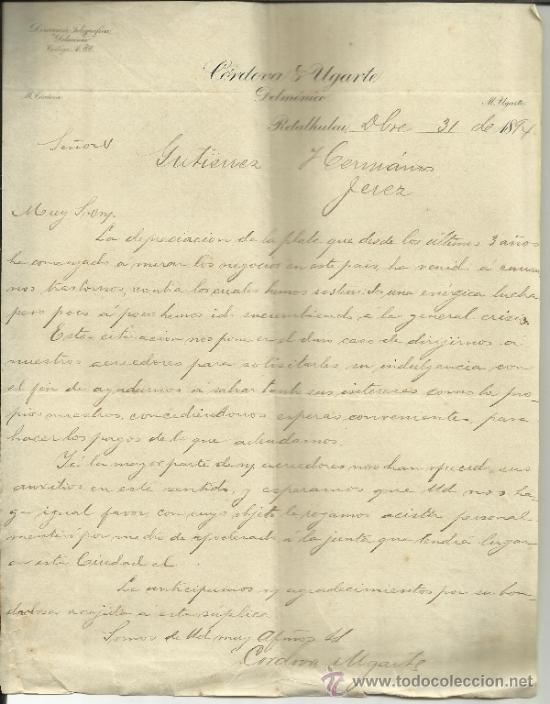 Dirección Telegráfica
"Delmónico"
Código A.B.C.
Córdova & Ugarte
Delmónico
M. Córdova
M. Ugarte
Retalhuleu, Dbre 31 de 1894
Señores
Gutiérrez y Hermanos
Jerez
Muy S. ntros.
La depreciacion de la plata que desde los últimos 3 años
ha comenzado á minar los negocios en este pais, ha venido á causar
nos trastornos, contra los cuales hemos sostenido una enérgica lucha
pero poco á poco hemos ido sucumbiendo á la general crisis.
Esta situacion nos pone en el duro caso de dirijirnos a
nuestros acreedores para solisitarles su indulgencia con
el fin de ayudarnos á salvar tanto sus intereses como los pro-
pios nuestros, concediendonos esperas convenientes, para
hacer los pagos de lo que adeudamos.
Yá la mayor parte de acreedores nos han ofrecido sus
auxilios en este sentido, y esperamos que Ud nos ha-
ga igual favor con cuyo objeto le rogamos acista personal-
mente ó por medio de apoderado á la junta que tendrá lugar
en esta Ciudad el
Le anticipamos ntros agradecimientos por su bon-
dadosa acojida á esta súplica
Somos de Ud muy Afmos SS
Córdova Ugarte
www.todocoleccion.net